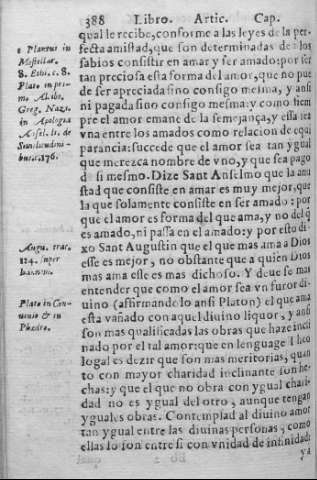 388 Libro. Artic. Cap.
qual le recibe, conforme a las leyes de la per-
fecta amistad, que son determinadas de los
sabios consistir en amar y ser amado: por ser
tan preciosa esta forma del amor, que no pue
de ser apreciada sino consigo mesma, y ansi
ni pagada sino consigo mesma: y como siem
pre el amor emane de la semejança, y essa sea
vna entre los amados como relacion de equi
parancia: succede que el amor sea tan ygual
que merezca nombre de vno, y que sea pago
d si mesmo. Dize Sant Anselmo que la ami
stad que consiste en amar es muy mejor, que
la que solamente consiste en ser amado: por
que el amor es forma del que ama, y no del q̃
es amado, ni passa en el amado: y por esto di-
xo Sant Augustin que el que mas ama a Dios
esse es mejor, no obstante que a quien Dios
mas ama esse es mas dichoso. Y deue se mas
entender que como el amor sea vn furor di-
uino (affirmandolo ansi Platon) el que ama
esta vañado con aquel diuino liquor, y ansi
son mas qualificadas las obras que haze incli
nado por el tal amor: que en lenguage Theo
logal es dezir que son mas meritorias, quan
to con mayor charidad inclinante son he-
chas: y que el que no obra con ygual chari-
dad no es ygual del otro, aunque tengan
yguales obras. Contemplad al diuino amor
tan ygual entre las diuinas personas, como
ellas lo son entre si con vnidad de infinidad:
ya
e Plautus in
Mostellar.
8. Ethi. c. 8.
Plato in pri-
mo Alcib.
Greg. Naza.
in Apologia
Ansel. li. de
Similitudini-
bus c. 176.
Augu. trac.
124. super
Ioannem.
Plato in Con-
uiuio & in
Phædro.